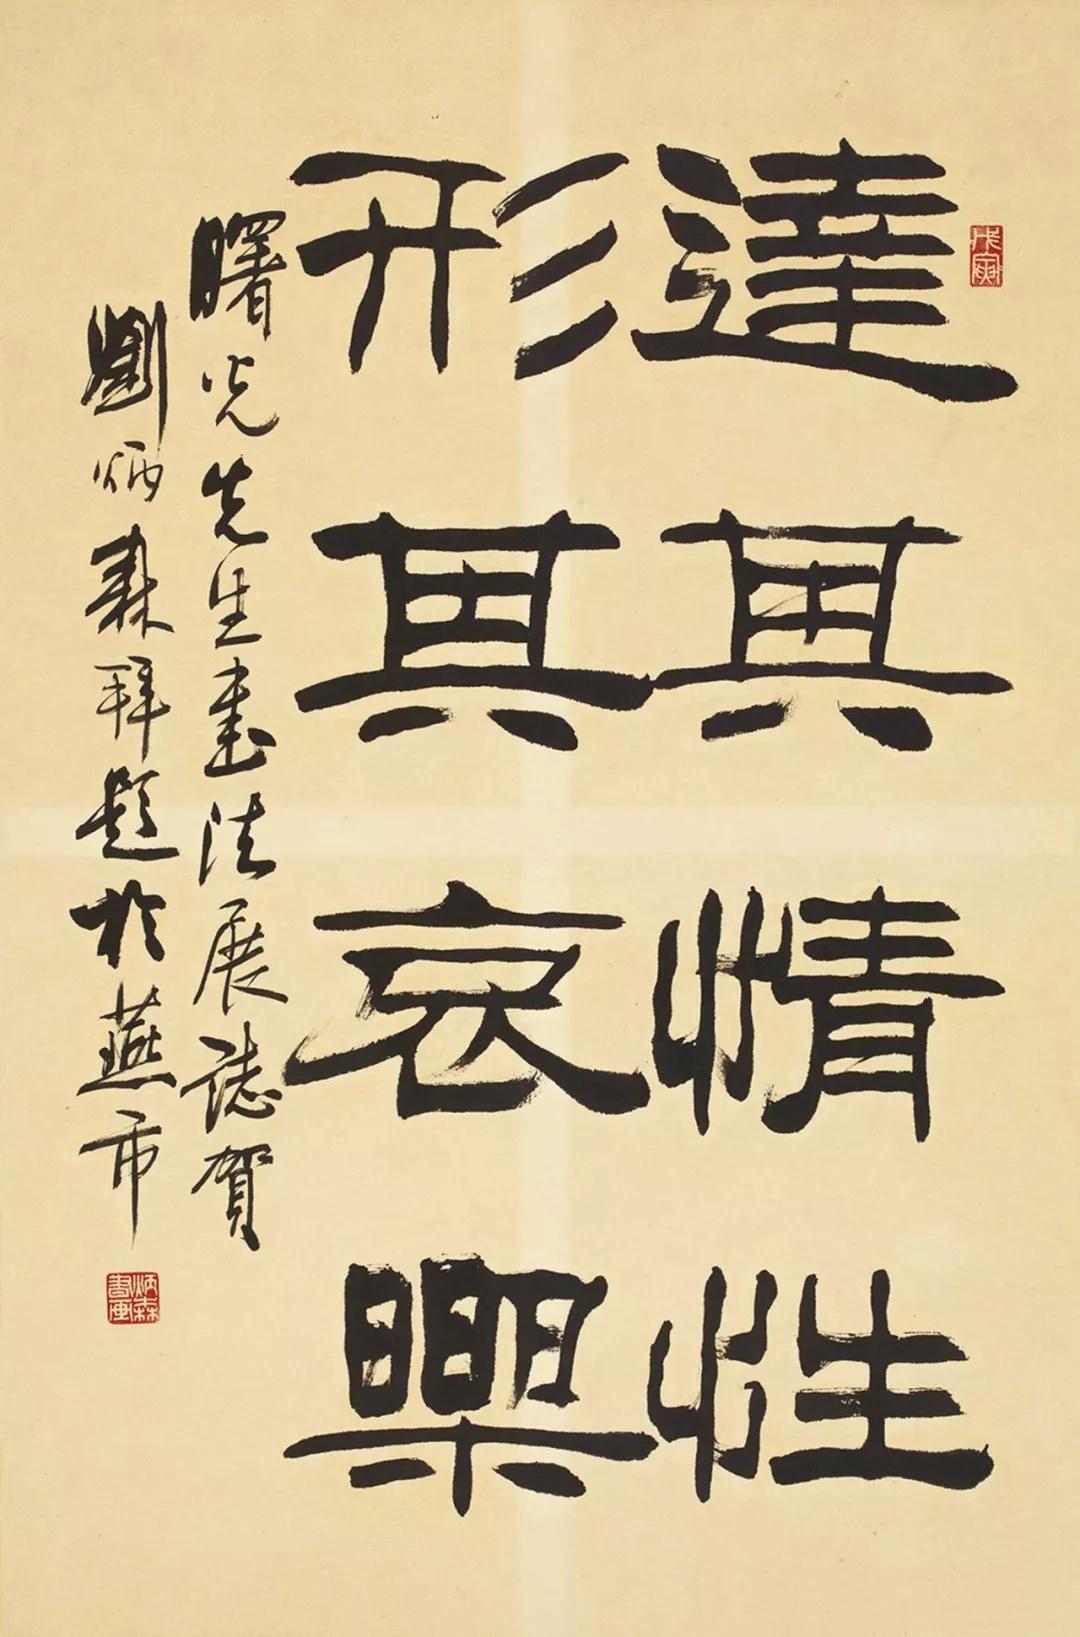 戊寅
達其情性
形其哀樂
曙光先生書法展誌賀
劉炳森拜題於燕市
炳森
書画